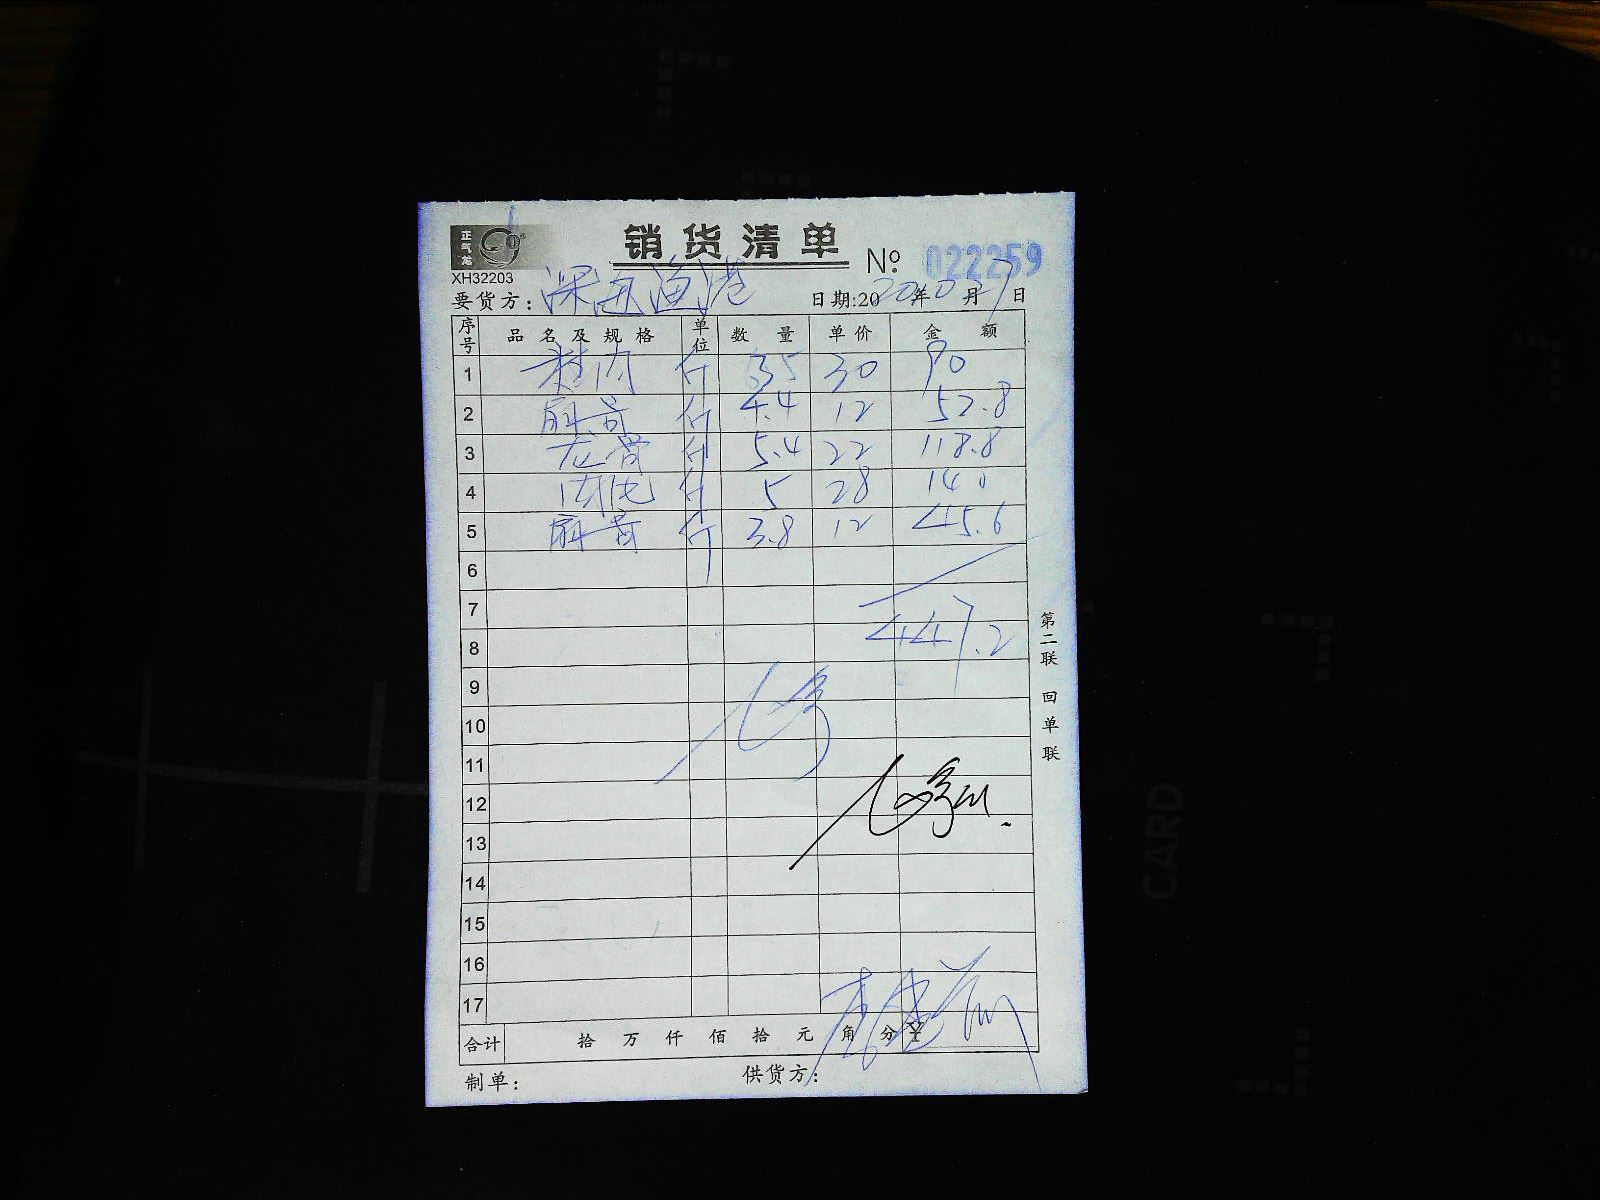 正气龙
XH32203
销货清单
№ 022259
要货方: 深海渔港 日期:2020年10月27日
序号 品名及规格 单位 数量 单价 金额
1 精肉 斤 35 30 90
2 扇骨 斤 4.4 12 52.8
3 龙骨 斤 5.4 22 118.8
4 斤 5 28 140
5 扇骨 斤 3.8 12 45.6
6
7
8 447.2
9
10
11
12
13
14
15
16
17
合计 拾 万 仟 佰 拾 元 角 分 ¥
制单: 供货方:
第二联 回单联
CARD